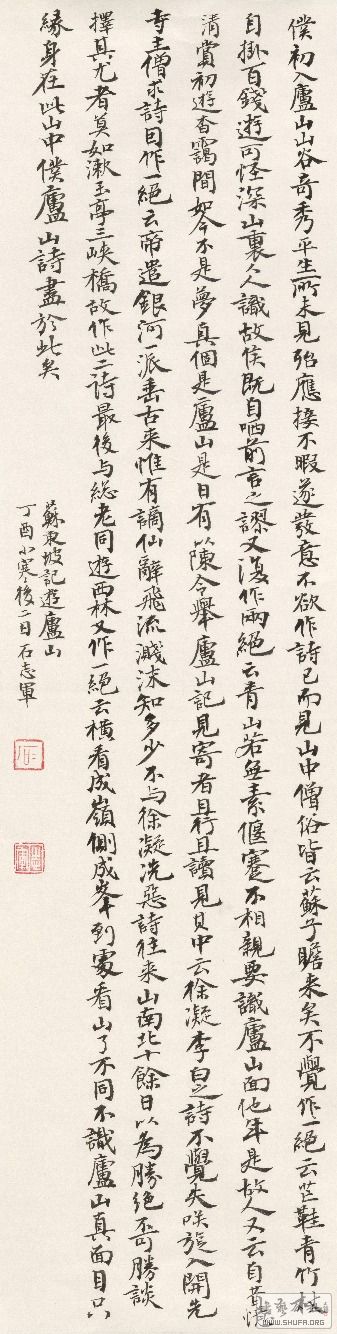 僕初入廬山山谷奇秀平生所未見殆應接不暇遂發意不欲作詩已而見山中僧俗皆云蘇子瞻来矣不覺作一絕云芒鞋青竹
自掛百錢遊可怪深山裏人人識故侯既自哂前言之謬又復作兩絕云青山若無素偃蹇不相親要識廬山面他年是故人又云自昔
清賞初遊杳靄間如今不是夢真個是廬山是日有以陳令舉廬山記見寄者且行且讀見其中云徐凝李白之詩不覺失笑旋入開先
寺主僧求詩因作一絕云帝遣銀河一派垂古来惟有謫仙辭飛流濺沫知多少不与徐凝洗惡詩往来山南北十餘日以為勝絕不可勝談
擇其尤者莫如漱玉亭三峽橋故作此二詩最後与総老同遊西林又作一絕云橫看成嶺側成峯到處看山了不同不識廬山真面目只
緣身在此山中僕廬山詩盡於此矣
蘇東坡記遊廬山
丁酉小寒後二日石志軍
WWW.SHUFA.ORG